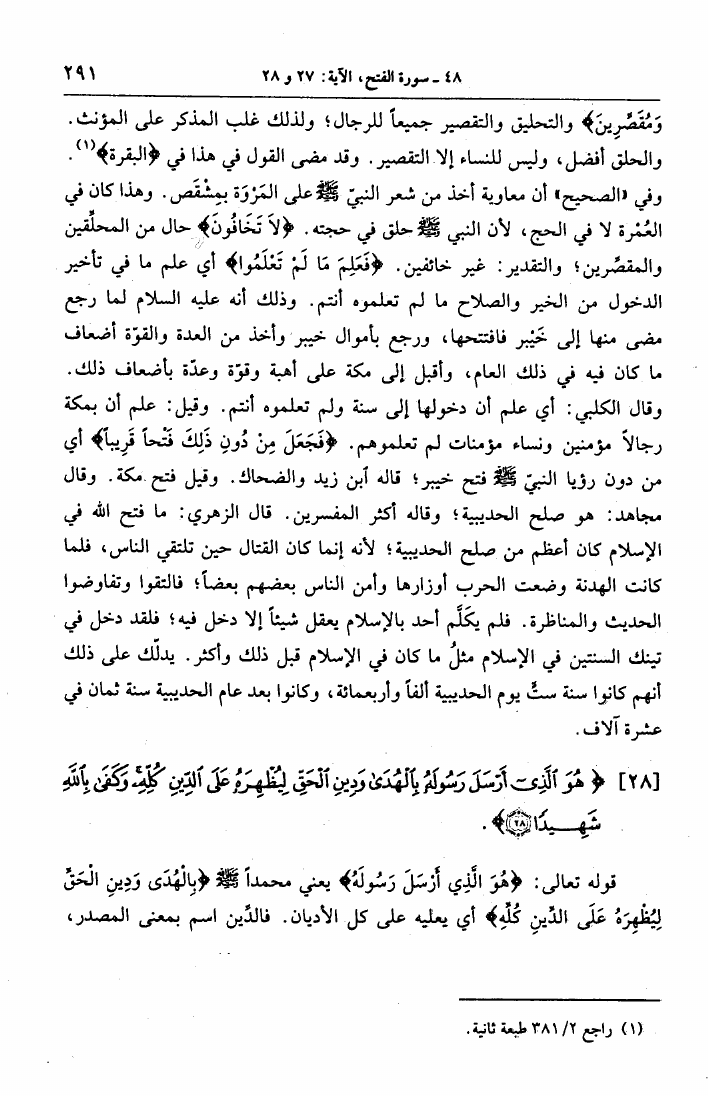 ٤٨ - سورة الفتح، الآية: ٢٧ و ٢٨ ٢٩١
وَمُقَصِّرِينَ﴾ والتحليق والتقصير جميعاً للرجال؛ ولذلك غلب المذكر على المؤنث.
والحلق أفضل، وليس للنساء إلا التقصير. وقد مضى القول في هذا في ﴿البقرة﴾(١).
وفي «الصحيح» أن معاوية أخذ من شعر النبيّ ﷺ على المَرْوَة بِمِشْقَص. وهذا كان في
العُمْرة لا في الحج، لأن النبي ﷺ حلق في حجته. ﴿لاَ تَخَافُونَ﴾ حال من المحلّقين
والمقصّرين؛ والتقدير: غير خائفين. ﴿فَعَلِمَ مَا لَمْ تَعْلَمُوا﴾ أي علم ما في تأخير
الدخول من الخير والصلاح ما لم تعلموه أنتم. وذلك أنه عليه السلام لما رجع
مضى منها إلى خَيْبر فافتتحها، ورجع بأموال خيبر وأخذ من العدة والقوّة أضعاف
ما كان فيه في ذلك العام، وأقبل إلى مكة على أهبة وقوّة وعدّة بأضعاف ذلك.
وقال الكلبي: أي علم أن دخولها إلى سنة ولم تعلموه أنتم. وقيل: علم أن بمكة
رجالاً مؤمنين ونساء مؤمنات لم تعلموهم. ﴿فَجَعَلَ مِنْ دُونِ ذَلِكَ فَتْحاً قَرِيباً﴾ أي
من دون رؤيا النبيّ ﷺ فتح خيبر؛ قاله ٱبن زيد والضحاك. وقيل فتح مكة. وقال
مجاهد: هو صلح الحديبية؛ وقاله أكثر المفسرين. قال الزهري: ما فتح الله في
الإسلام كان أعظم من صلح الحديبية؛ لأنه إنما كان القتال حين تلتقي الناس، فلما
كانت الهدنة وضعت الحرب أوزارها وأمن الناس بعضهم بعضاً؛ فالتقوا وتفاوضوا
الحديث والمناظرة. فلم يكَلَّم أحد بالإسلام يعقل شيئاً إلا دخل فيه؛ فلقد دخل في
تينك السنتين في الإسلام مثلُ ما كان في الإسلام قبل ذلك وأكثر. يدلّك على ذلك
أنهم كانوا سنة ستّ يوم الحديبية ألفاً وأربعمائة، وكانوا بعد عام الحديبية سنة ثمان في
عشرة آلاف.
[٢٨] ﴿هُوَ ٱلَّذِىٓ أَرْسَلَ رَسُولَهُۥ بِٱلْهُدَىٰ وَدِينِ ٱلْحَقِّ لِيُظْهِرَهُۥ عَلَى ٱلدِّينِ كُلِّهِۦۚ وَكَفَىٰ بِٱللَّهِ
شَهِيدًا ۝٢٨﴾.
قوله تعالى: ﴿هُوَ الَّذِي أَرْسَلَ رَسُولَهُ﴾ يعني محمداً ﷺ ﴿بِالْهُدَى وَدِينِ الْحَقِّ
لِيُظْهِرَهُ عَلَى الدِّينِ كُلِّهِ﴾ أي يعليه على كل الأديان. فالدِّين اسم بمعنى المصدر،
(١) راجع ٣٨١/٢ طبعة ثانية.